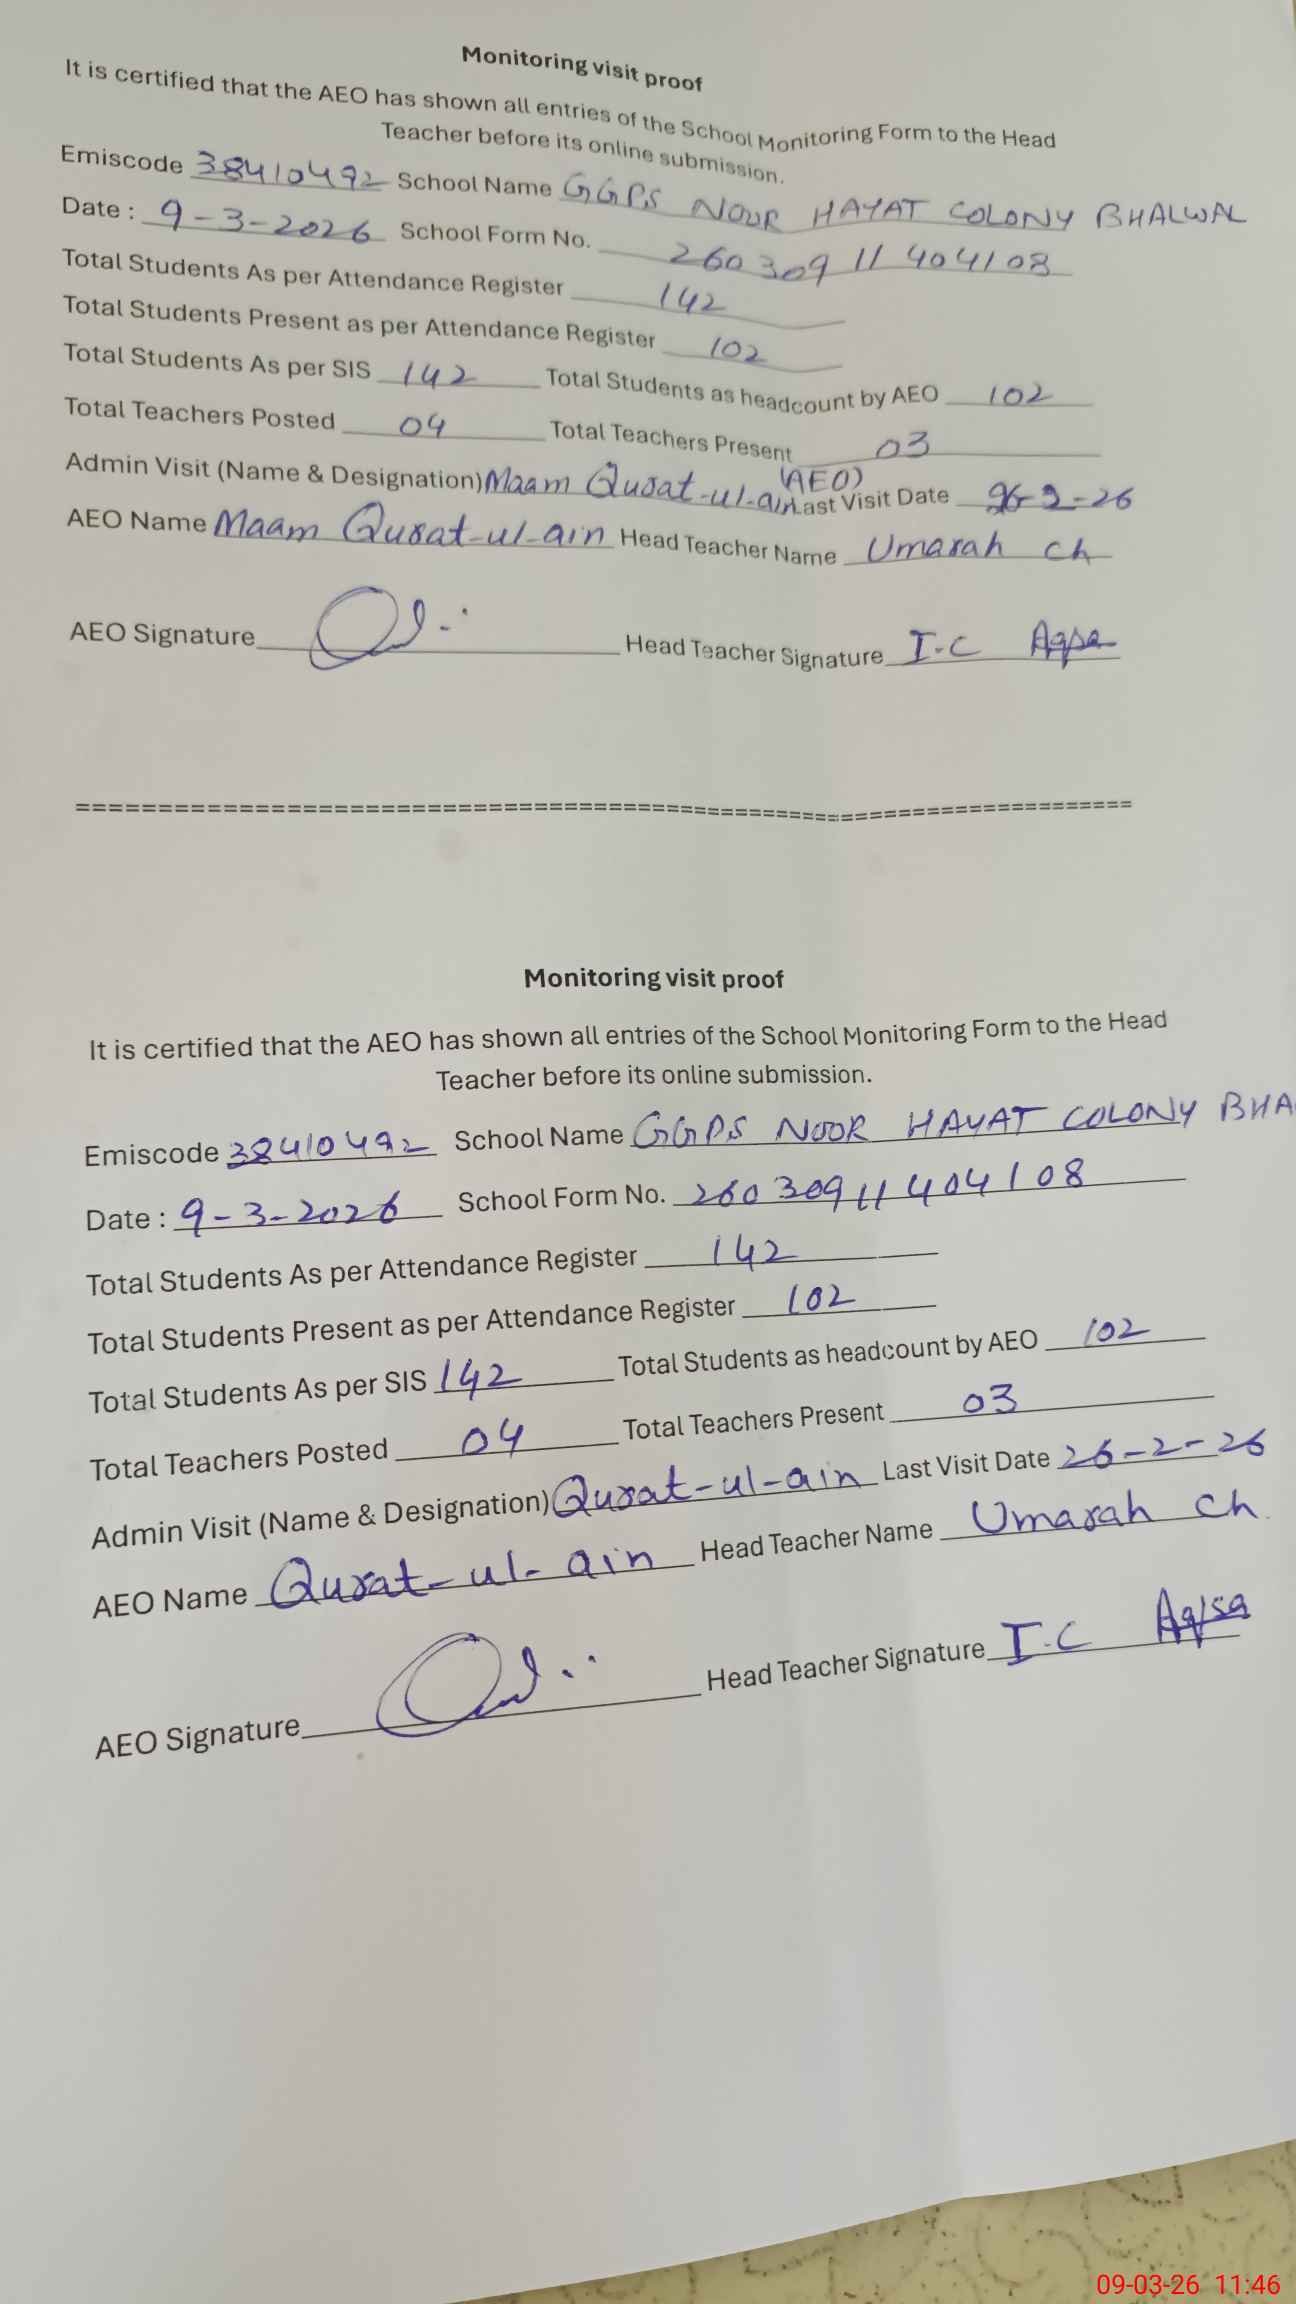 Monitoring visit proof
It is certified that the AEO has shown all entries of the School Monitoring Form to the Head
Teacher before its online submission.
Emiscode 38410492 School Name GGPS NOUR HAYAT COLONY BHALWAL
Date : 9-3-2026 School Form No. 260309 11 404108
Total Students As per Attendance Register 142
Total Students Present as per Attendance Register 102
Total Students As per SIS 142 Total Students as headcount by AEO 102
Total Teachers Posted 04 Total Teachers Present 03
Admin Visit (Name & Designation) Maam Qurat-ul-ain (AEO) Last Visit Date 26-2-26
AEO Name Maam Qurat-ul-ain Head Teacher Name Umarah Ch
AEO Signature Head Teacher Signature I-C Aqsa
====================
Monitoring visit proof
It is certified that the AEO has shown all entries of the School Monitoring Form to the Head
Teacher before its online submission.
Emiscode 38410492 School Name GGPS NOOR HAYAT COLONY BHA
Date : 9-3-2026 School Form No. 260309 11 404108
Total Students As per Attendance Register 142
Total Students Present as per Attendance Register 102
Total Students As per SIS 142 Total Students as headcount by AEO 102
Total Teachers Posted 04 Total Teachers Present 03
Admin Visit (Name & Designation) Qurat-ul-ain Last Visit Date 26-2-26
AEO Name Qurat-ul-ain Head Teacher Name Umarah Ch
AEO Signature Head Teacher Signature I-C Aqsa
09-03-26 11:46